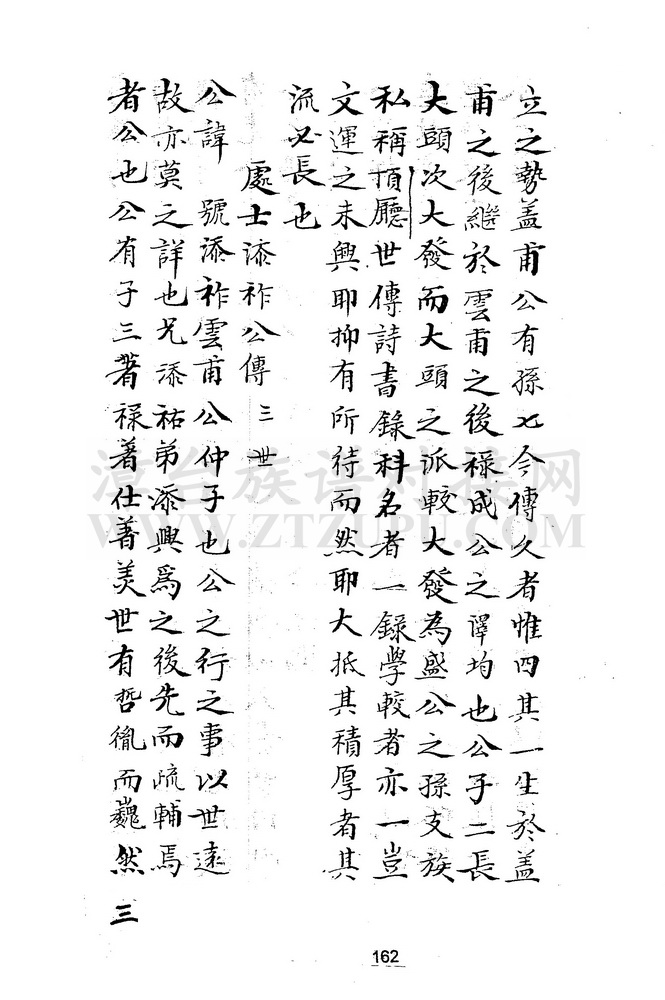 立之勢盖甫公有孫七今傳久者惟四其一生於盖
甫之後繼於雲甫之後禄成公之譯均也公子二長
大頭次大發而大頭之派較大發為盛公之孫支族
私稱頂廳世傳詩書錄科名者一錄學較者亦一豈
文運之未興耶抑有所待而然耶大抵其積厚者其
流必長也
處士添祚公傳 三世
公諱 號添祚雲甫公仲子也公之行之事以世遠
故亦莫之詳也兄添祐弟添興爲之後先而疏輔焉
者公也公有子三著禄著仕著美世有哲胤而巍然
三
162
淳台族谱对接网
WWW.ZTZUPU.COM